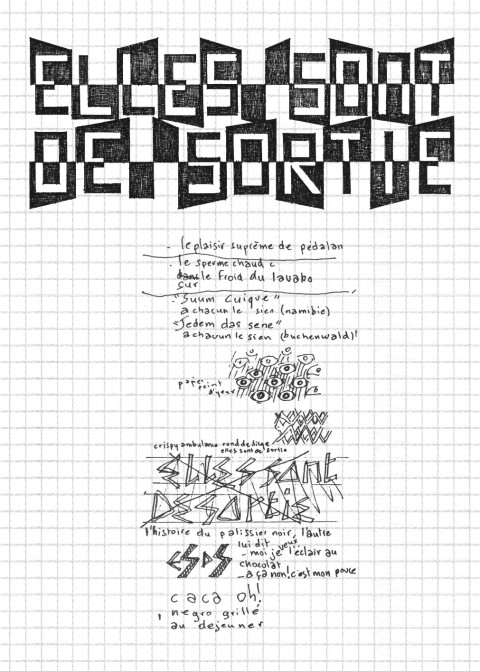 ELLES SONT
DE SORTIE
- le plaisir suprême de pédalan
- le sperme chaud c
dans le froid du lavabo
sur
- "Suum Cuique"
a chacun le sien (namibie)
"Jedem das sene"
a chacun le sien (buchenwald)
point
d'yeux
crispy ambulance rond de
elles sont de sortie
ELLES SONT
DE SORTIE
l'histoire du palissier noir, l'autre
lui dit
- moi je veux l'éclair au
chocolat
- a ça non! c'est mon pouce
ESDS
caca oh!
negro grillé
au dejeuner